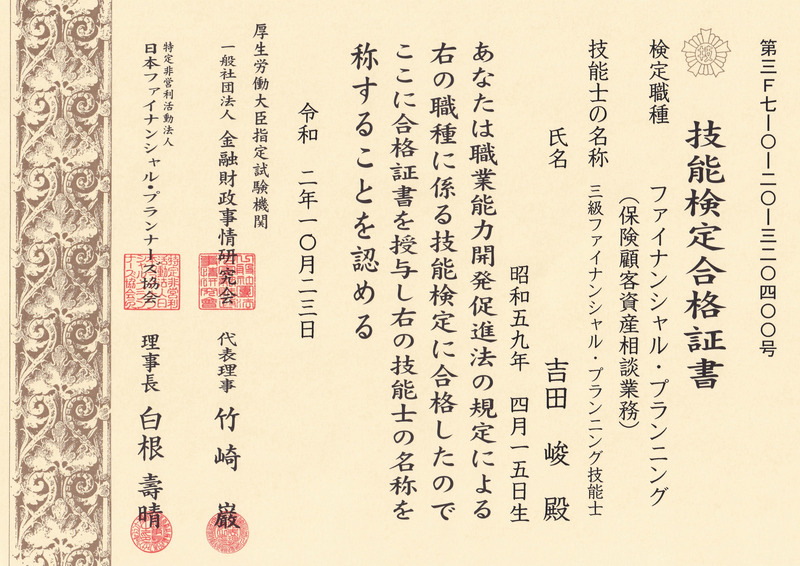 第三F七ー〇ー二〇ー三二〇四〇〇号
技能検定合格証書
検定職種　ファイナンシャル・プランニング
（保険顧客資産相談業務）
技能士の名称　三級ファイナンシャル・プランニング技能士
氏名　吉田　峻　殿
昭和五九年　四月一五日生
あなたは職業能力開発促進法の規定による
右の職種に係る技能検定に合格したので
ここに合格証書を授与し右の技能士の名称を
称することを認める
令和　二年一〇月二三日
厚生労働大臣指定試験機関
一般社団法人　金融財政事情研究会　代表理事　竹崎　巌
特定非営利活動法人
日本ファイナンシャル・プランナーズ協会　理事長　白根　壽晴